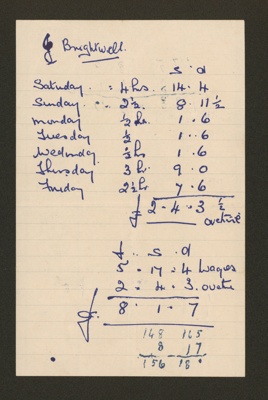 J Brightwell.
s . d
Saturday . = 4 hrs. 14 . 4
Sunday . = 2½. 8 . 11½
monday ½ hr. 1 . 6
Tuesday ½ 1 . 6
Wednesday ½ hr 1 . 6
Thursday 3 hr. 9 . 0
Friday 2½ hr 7 . 6
£ 2 . 4 . 3 ½
overtime
£ . s . d
5 . 17 = 4 wages
2 . 4 = 3 . overtime
£ 8 . 1 = 7
148 165
8 17
156 18